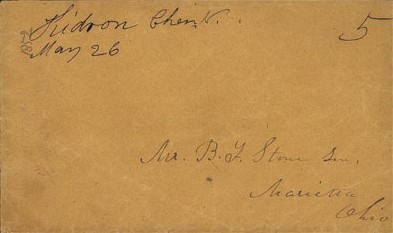 Kidron 5
May 26
Mr. B. F. Stone Sen.
Marietta
Ohio